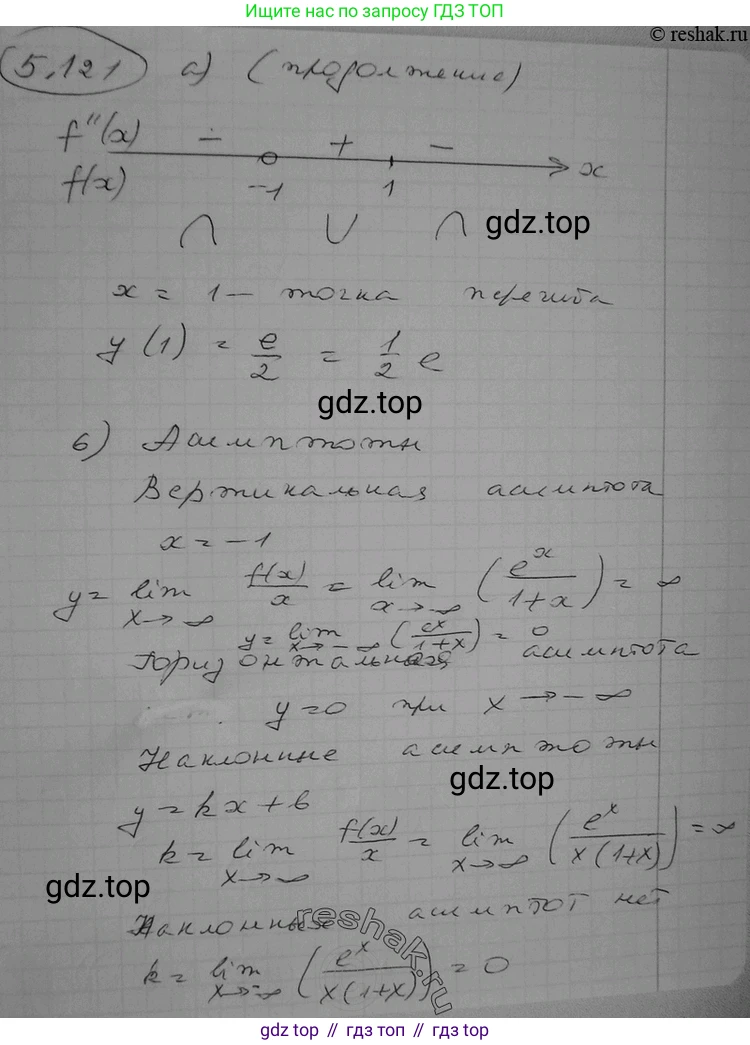 Ищите нас по запросу ГДЗ ТОП
© reshak.ru
5.121 а) (продолжение)
f''(x) - + -
f(x) -1 1 x
∩ ∪ ∩ gdz.top
x = 1 - точка перегиба
y(1) = e/2 = 1/2 e
gdz.top
6) Асимптоты
Вертикальная асимптота
x = -1
y = lim x→∞ f(x)/x = lim x→∞ (e^x/(1+x)) = ∞
y = lim x→-∞ (e^x/(1+x)) = 0
Горизонтальная асимптота
y=0 при x → -∞
Наклонные асимптоты
gdz.top
y = kx + b
k = lim x→∞ f(x)/x = lim x→∞ (e^x/(x(1+x))) = ∞
gdz.top
Наклонных асимптот нет
reshak.ru
k = lim x→-∞ (e^x/(x(1+x))) = 0
gdz top // гдз топ // gdz.top